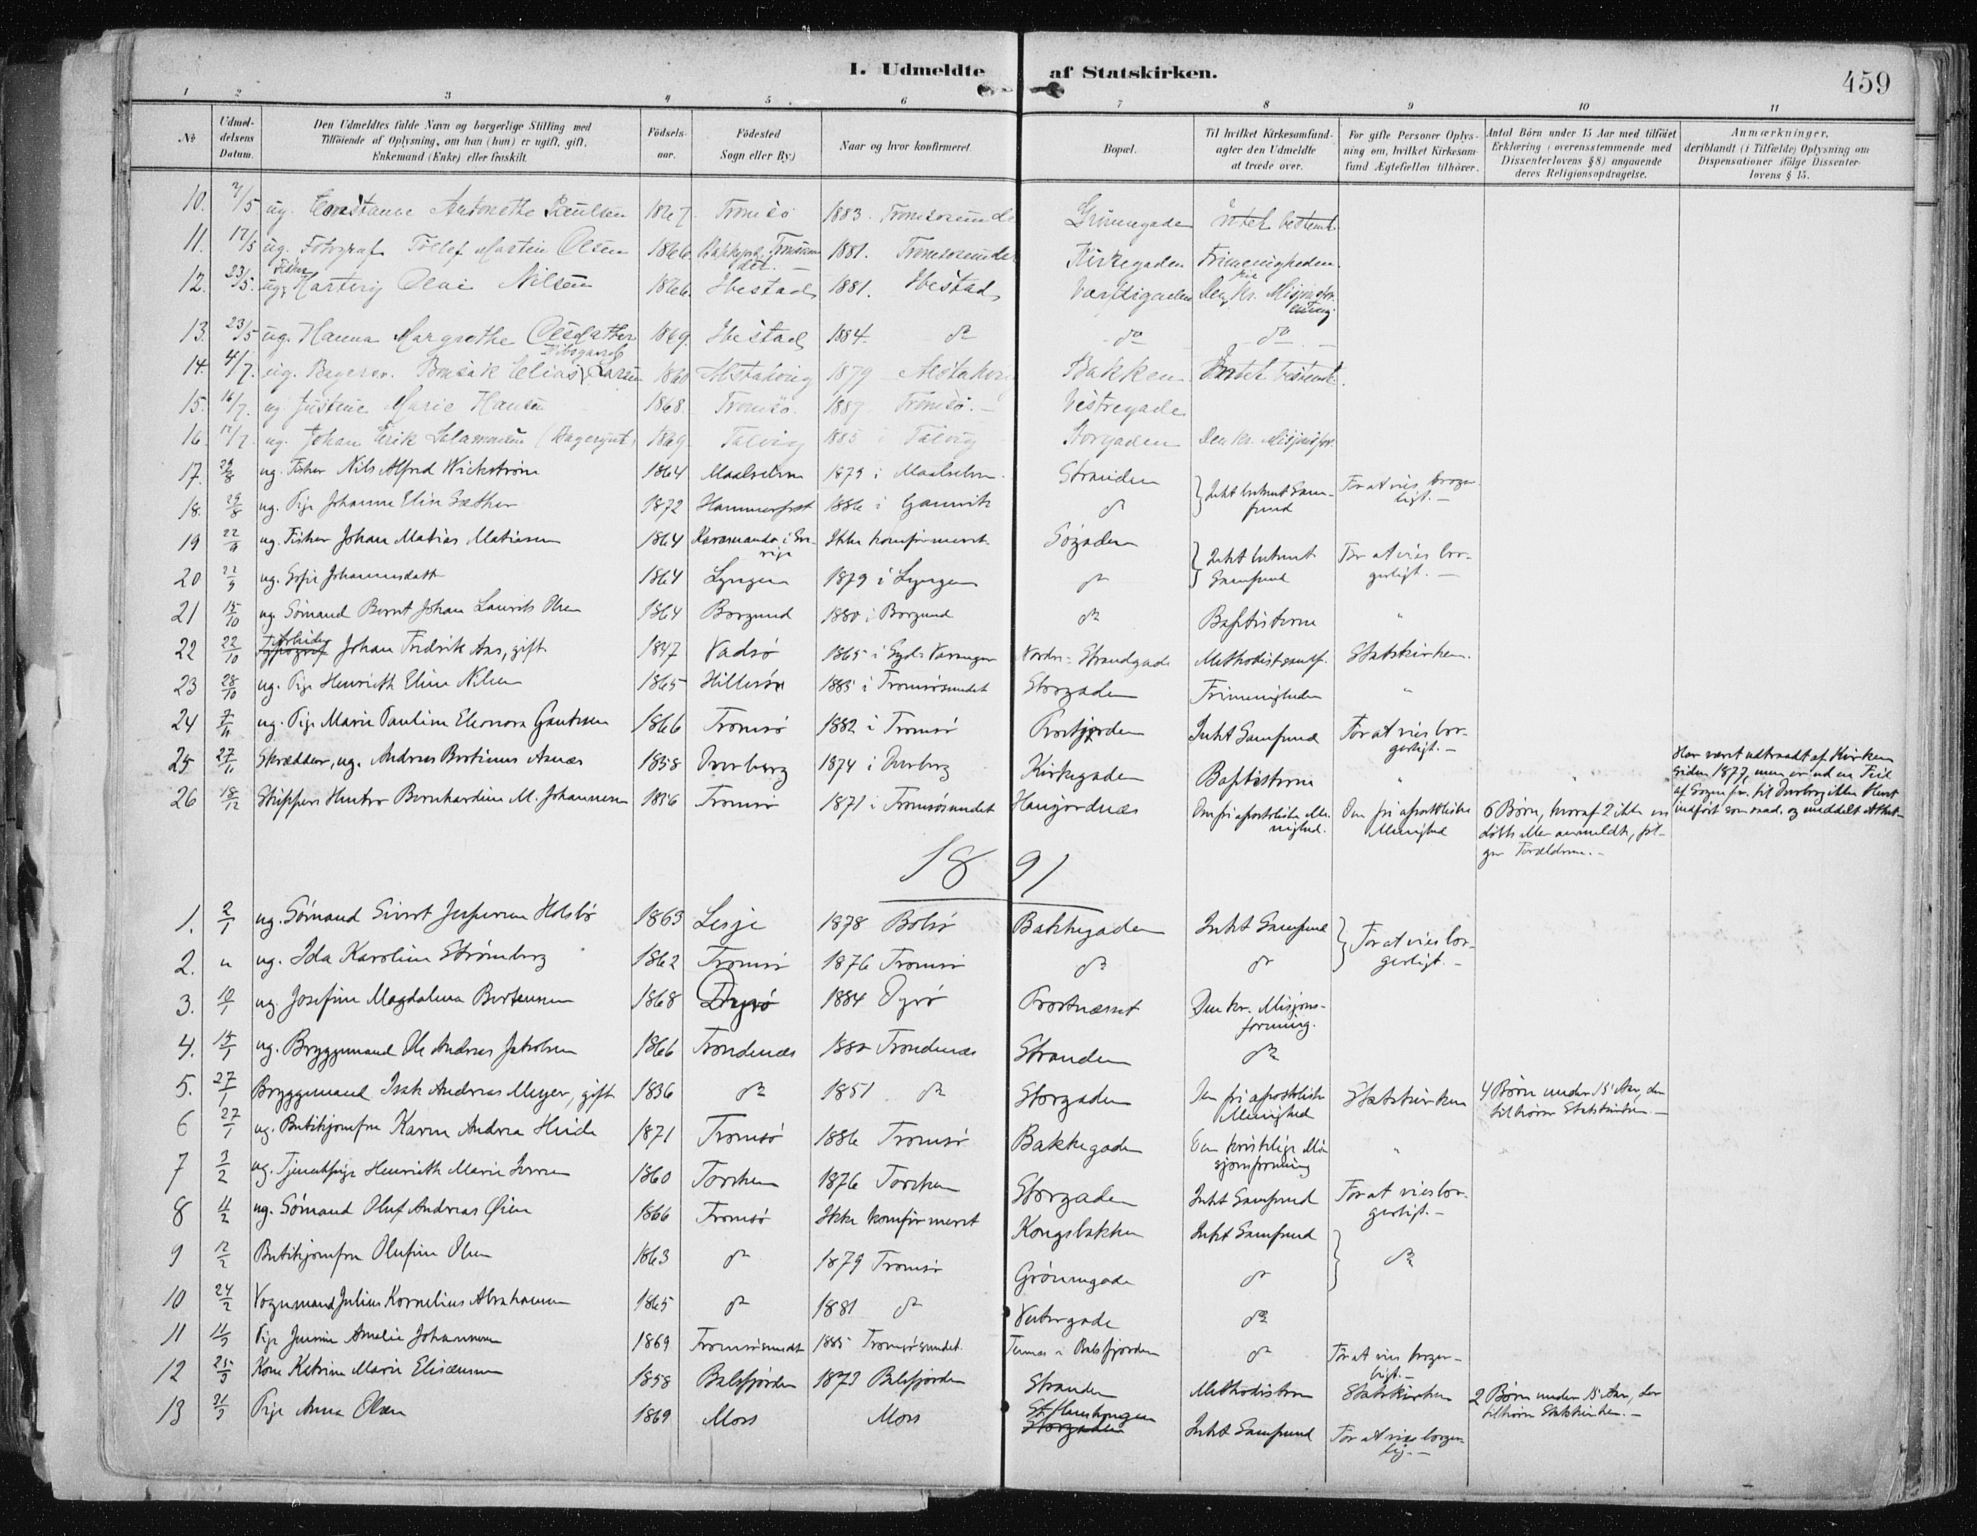 I. Udmeldte af Statskirken. 459
1 2 3 4 5 6 7 8 9 10 11
No
Udmeldelsens Datum.
Den Udmeldtes fulde Navn og borgerlige Stilling med Tilføiende af Oplysning, om han (hun) er ugift, gift, Enkemand (Enke) eller fraskilt.
Fødselsaar.
Fødested Sogn eller By.)
Naar og hvor konfirmeret.
Bopæl.
Til hvilket Kirkesamfund agter den Udmeldte at træde over.
For gifte Personer Oplysning om, hvilket Kirkesamfund Ægtefællen tilhører.
Antal Børn under 15 Aar med tilføiet Erklæring (overensstemmende med Dissenterlovens § 8) angaaende deres Religionsopdragelse.
Anmærkninger, deriblandt (i Tilfælde) Oplysning om Dispensationer ifølge Dissenterlovens § 15.
10. 7/5 ug. Constance Antonette Paulsen 1867. Tromsø 1883. Tromsøsunde Grønnegaden Intet bestemt
11. 17/5 ug. Fotograf Tollef Martin Olsen 1866. 1881. Tromsøsundet Kirkegaden Frimenigheden.
12. 23/5 ug. Fisker Martin Olai Nilsen 1866. Ibestad 1881. Ibestad Den fri kr. Misjonsforening
13. 23/5 ug. Hanna Margrethe Olsdatter 1869. Ibestad 1884. do do do
14. 4/7. ug. Bagersv. Elias Larsen 1860 Alstahoug 1879 Alstahoug Bakken Intet bestemt.
15. 16/7. ug Justine Marie Hansen 1868. Tromsø. 1887 Tromsø. Vestregade
16. 17/7. ug. Johan Erik Salamonsen (Bagersvend) 1869. Talvig 1885 i Talvig Storgaden Den kr. Misjonsfor.
17. 29/8 ug. Fisker Nils Alfred Wickstrøm 1864 Maalselven 1879 i Maalselven. Stranden } Intet bestemt Samfund For at vies borgerligt.
18. 29/8 ug. Pige Johanne Elise Sæther 1872 Hammerfest 1886 i Gamvik do
19 22/9 ug. Fisker Johan Matias Matiesen 1864 Karesuando i Sverige Ikke konfirmeret. Søgaden } Intet bestemt Samfund For at vies borgerligt.
20 22/9 ug. Sofie Johannesdatt 1864 Lyngen 1879 i Lyngen do
21 15/10 ug. Sømand Bernt Johan Laurits Olsen 1864 Borgund 1880 i Borgund do Baptisterne "
22 22/10 Arbeider Johan Fredrik Aas, gift 1847 Vadsø 1865 i Syd-Varanger Nordre-Strandgade Methodistsamf. Statskirken.
23 28/10 ug. Pige Henriette Eline Nilsen 1865 Hillesø 1883 i Tromsøsundet Storgaden Frimenigheden "
24 7/11 ug. Pige Marie Pauline Eleonora Gautesen 1866 Tromsø 1882 i Tromsø Intet Samfund For at vies borgerligt.
25 27/11 Skrædder, ug. Andreas Bertinus Aanæs 1858 Overberg 1874 i Overberg Kirkegaden Baptisterne " " Har været udtraadt af Kirken siden 1877, men
26 18/12 Skippers Hustru Bernhardine M. Johannesen 1856 Tromsø 1871 i Tromsøsundet Haugjordnæs Den fri apostoliske Menighed. Den fri apostoliske Menighed 6 Børn, hvoraf 2 ikke er døbte eller anmeldte, følger Forældrene.
1891
1. 2/1 ug. Sømand Sivert Jespersen Holsbø 1863 Lesje 1878 Bolsø Bakkegaden Intet Samfund } For at vies borgerligt.
2. " ug. Ida Karoline Strømberg 1862 Tromsø 1876 Tromsø do do
3. 10/1 ug. Josefine Magdalena Bertensen 1868 Dyrø 1884 Dyrø Prestnæsset Den kr. Misjonsforening.
4. 15/1 ug. Bryggemand Ole Andreas Jakobsen 1866 Trondenæs 1882 Trondenæs Stranden do
5. 27/1 Bryggemand Isak Andreas Meyer, gift 1836 do 1851 do Storgaden Den fri apostoliske Menighed Statskirken 4 Børn under 15 Aar, der tilhører Statskirken.
6 27/1 ug. Butikjomfru Karen Andrea Heide 1871 Tromsø 1886 Tromsø Bakkegaden Den kristelige Missjonsforening "
7 3/2 ug. Tjenestpige Henriette Marie Iversen 1860 Torsken 1876 Torsken Storgaden Intet Samfund For at vies borgerligt.
8 11/2 ug. Sømand Oluf Andreas Øien 1866 Tromsø Ikke konfirmeret Kongsbakken Intet Samfund } do
9 12/2 Butikjomfru Olufine Olsen 1863 do 1879 Tromsø Grønnegade do
10 24/2 Vognmand Julius Kornelius Abrahamsen 1865 do 1881 do Vestregade do
11 11/3 Pige Jennie Amalie Johannesen 1869 Tromsøsundet 1885 Tromsøsundet. Tennes i Balsfjorden do For at vies borgerligt.
12 25/3 Kone Katrine Marie Elisæussen 1858 Balsfjorden 1873 Balsfjorden Stranden Methodisterne Statskirken 2 Børn under 15 Aar, der tilhører Statskirken.
13 31/3 Pige Anna Olsen 1869 Mors Mors Storgaden Intet Samfund For at vies borgerlig.